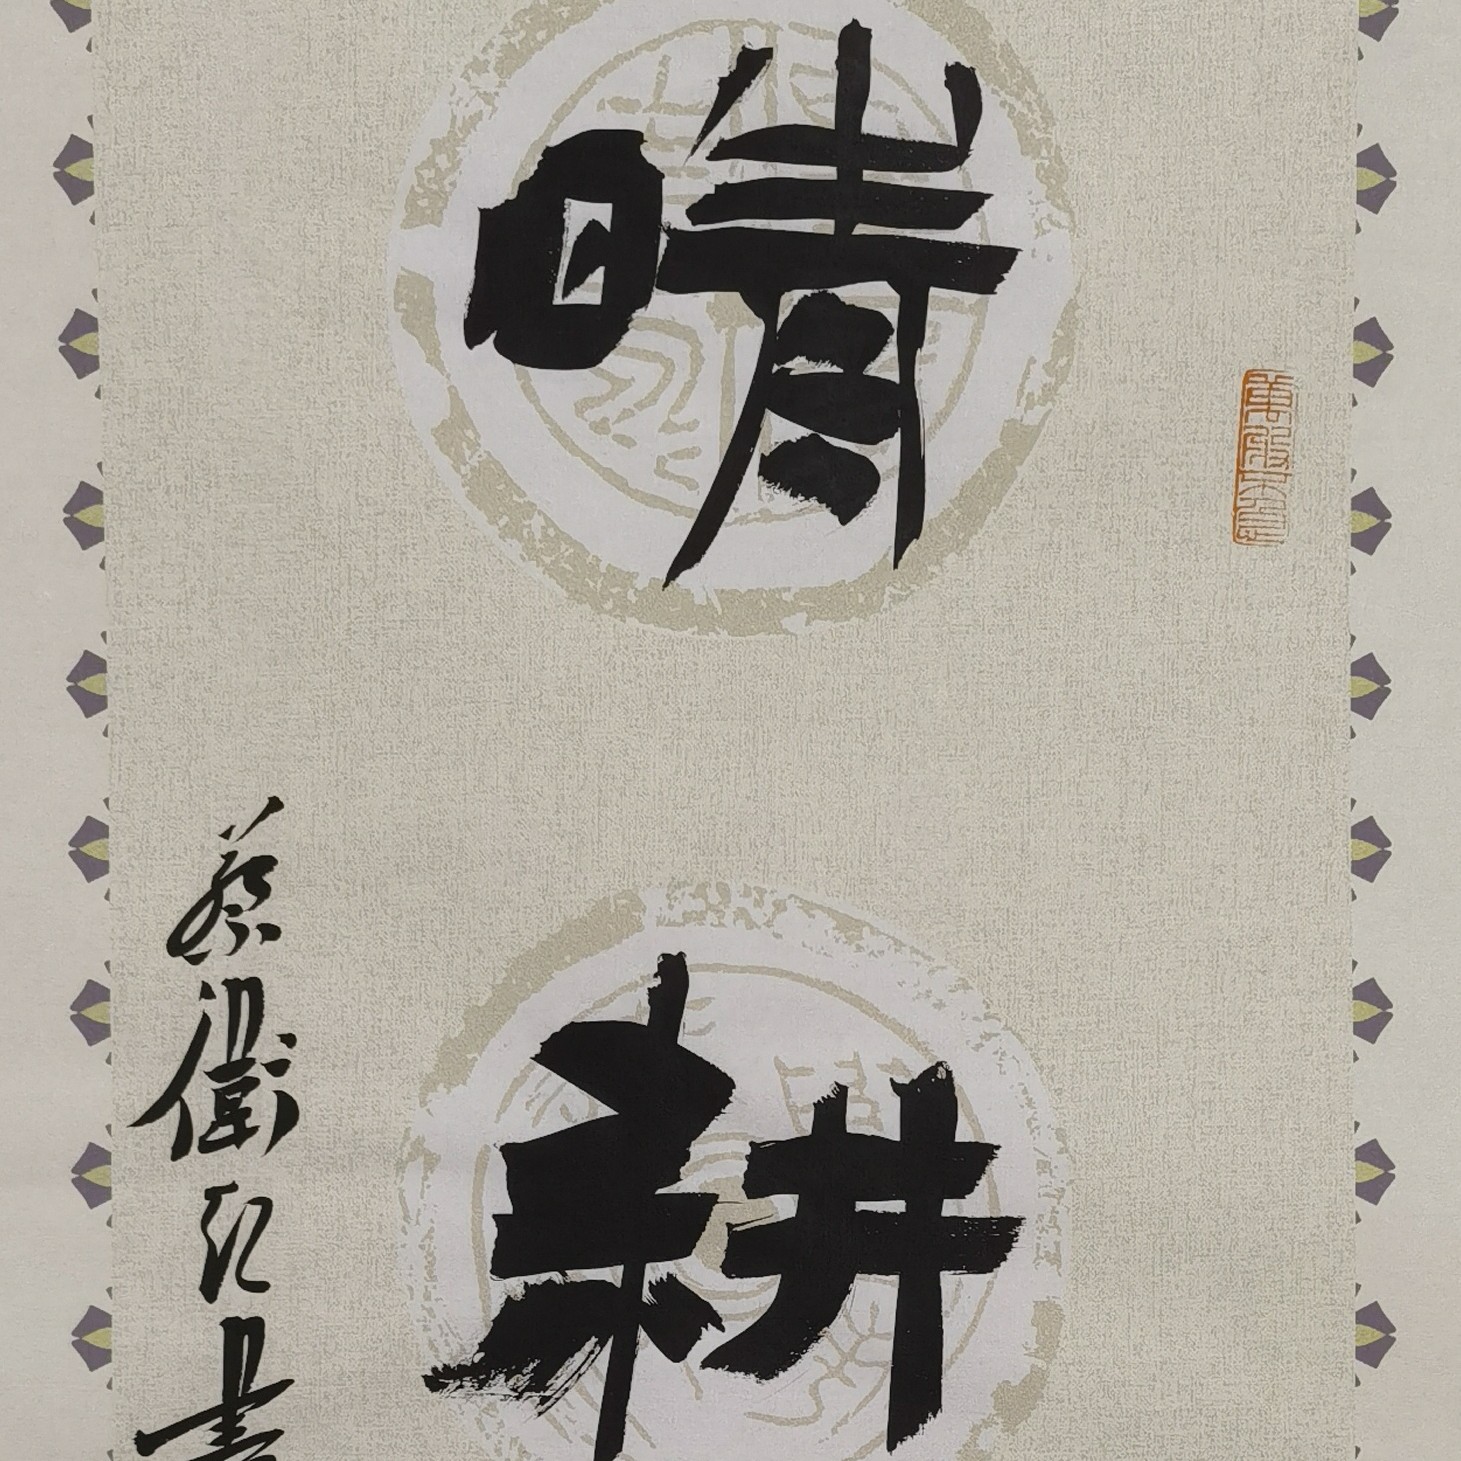 晴
耕
蔡衛红書